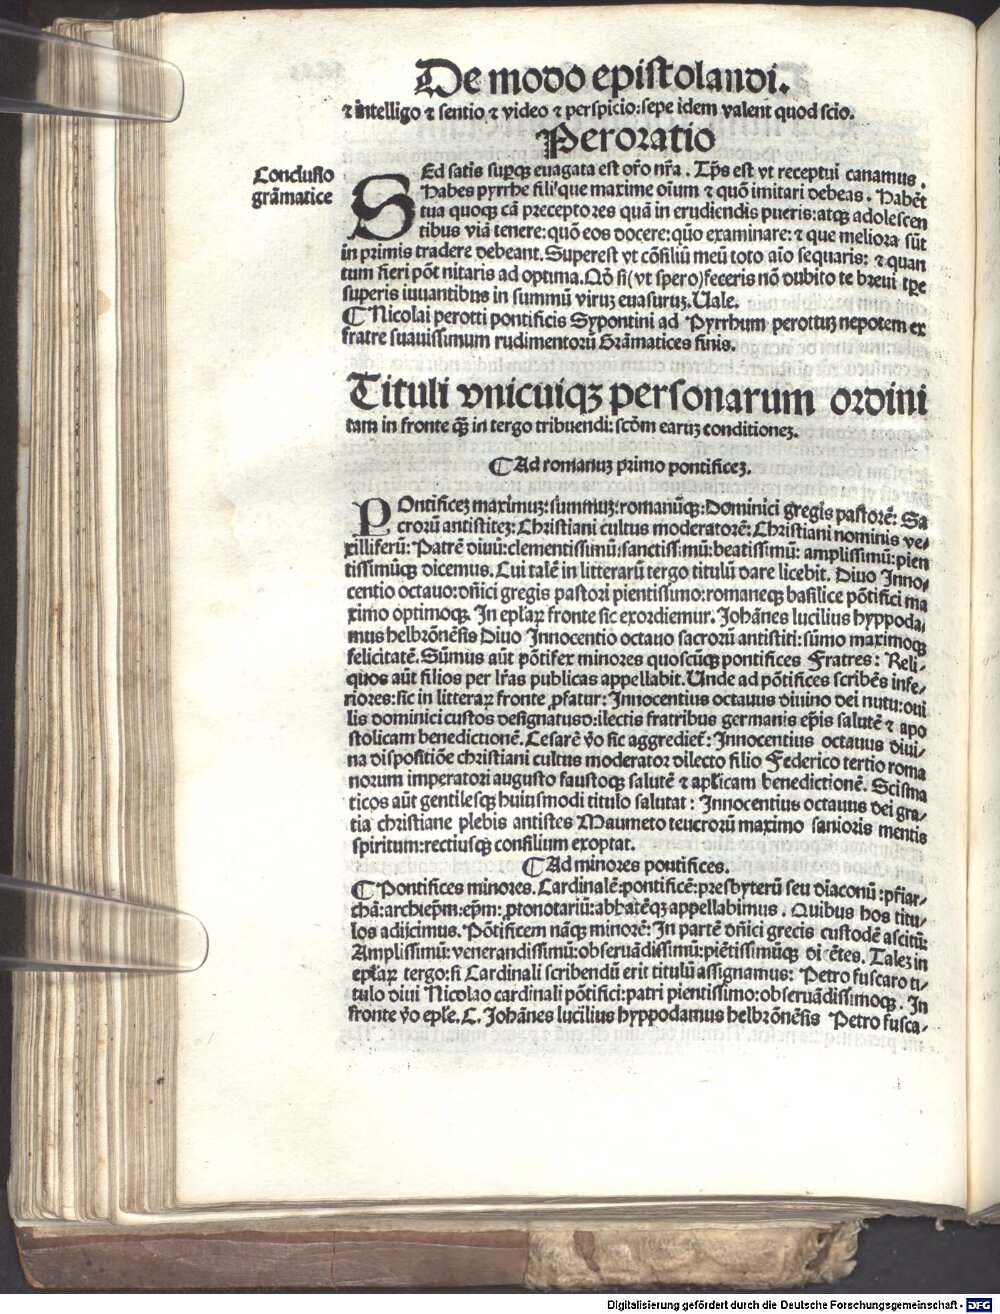 De modo epistolandi.
⁊ intelligo ⁊ sentio ⁊ video ⁊ perspicio: sepe idem valent quod scio.
Peroratio
Conclusio
grāmatice
SEd satis supꝗ euagata est or̄o nr̄a. Tp̄s est vt receptui canamus.
Habes pyrrhe fili que maxime oīum ⁊ quō imitari debeas. Habēt
tua quoqꝫ cā preceptores quā in erudiendis pueris: atqꝫ adolescen
tibus viā tenere: quō eos docere: quō examinare: ⁊ que meliora sūt
in primis tradere debeant. Superest vt cōsiliū meū toto aīo sequaris: ⁊ quan
tum fieri pōt nitaris ad optima. Qō si (vt spero) feceris nō dubito te breui tp̄e
superis iuuantibus in summū viruꝫ euasuruꝫ. Uale.
¶ Nicolai perotti pontificis Sypontini ad Pyrrhum perottuꝫ nepotem ex
fratre suauissimum rudimentorū Grāmatices finis.
Tituli vnicuiqꝫ personarum ordini
tam in fronte ꝗ̄ in tergo tribuendi: scd̄m earuꝫ conditioneꝫ.
¶ Ad romanuꝫ primo pontificeꝫ.
POntificeꝫ maximuꝫ: summuꝫ: romanūqꝫ: Dominici gregis pastorē: Sa
crorū antistiteꝫ: Christiani cultus moderatorē: Christiani nominis ve-
xilliferū: Patrē diuū: clementissimū: sanctissimū: beatissimū: amplissimū: pien
tissimūqꝫ dicemus. Cui talē in litterarū tergo titulū dare licebit. Diuo Inno-
centio octauo: dn̄ici gregis pastori pientissimo: romaneqꝫ basilice pōtifici ma
ximo optimoqꝫ. In epl̄aꝝ fronte sic exordiemur. Johānes lucilius hyppoda-
mus helbrōnēsis Diuo Innocentio octauo sacrorū antistiti: sūmo maximoqꝫ
felicitatē. Sūmus aūt pōtifex minores quoscūqꝫ pontifices Fratres: Reli-
quos aūt filios per lr̄as publicas appellabit. Unde ad pōtifices scribēs infe-
riores: sic in litteraꝝ fronte p̄fatur: Innocentius octauus diuino dei nutu: oui
lis dominici custos designatusd: ilectis fratribus germanis ep̄is salutē ⁊ apo
stolicam benedictionē. Cesarē v̄o sic aggrediet̄: Innocentius octauus diui-
na dispositiōe christiani cultus moderator dilecto filio Federico tertio roma
norum imperatori augusto faustoqꝫ salutē ⁊ apl̄icam benedictionē. Scisma
ticos aūt gentilesqꝫ huiusmodi titulo salutat: Innocentius octauus dei gra-
tia christiane plebis antistes Maumeto teucrorū maximo sanioris mentis
spiritum: rectiusqꝫ consilium exoptat.
¶ Ad minores pontifices.
¶ Pontifices minores. Cardinalē: pontificē: presbyterū seu diaconū: pr̄iar-
chā: archiep̄m: ep̄m: ꝓtonotariū: abbatēqꝫ appellabimus. Quibus hos titu-
los adijcimus. Pōtificem nāqꝫ minorē: In partē dn̄ici grecis custodē ascitū:
Amplissimū: venerandissimū: obseruādissimū: piētissimūqꝫ di cētes. Taleꝫ in
epl̄aꝝ tergo: si Cardinali scribendū erit titulū assignamus: Petro fuscaro ti-
tulo diui Nicolao cardinali pōtifici: patri pientissimo: obseruādissimoqꝫ. In
fronte v̄o epl̄e. C. Johānes lucilius hyppodamus helbrōnēsis Petro fusca-
Digitalisierung gefördert durch die Deutsche Forschungsgemeinschaft - DFG